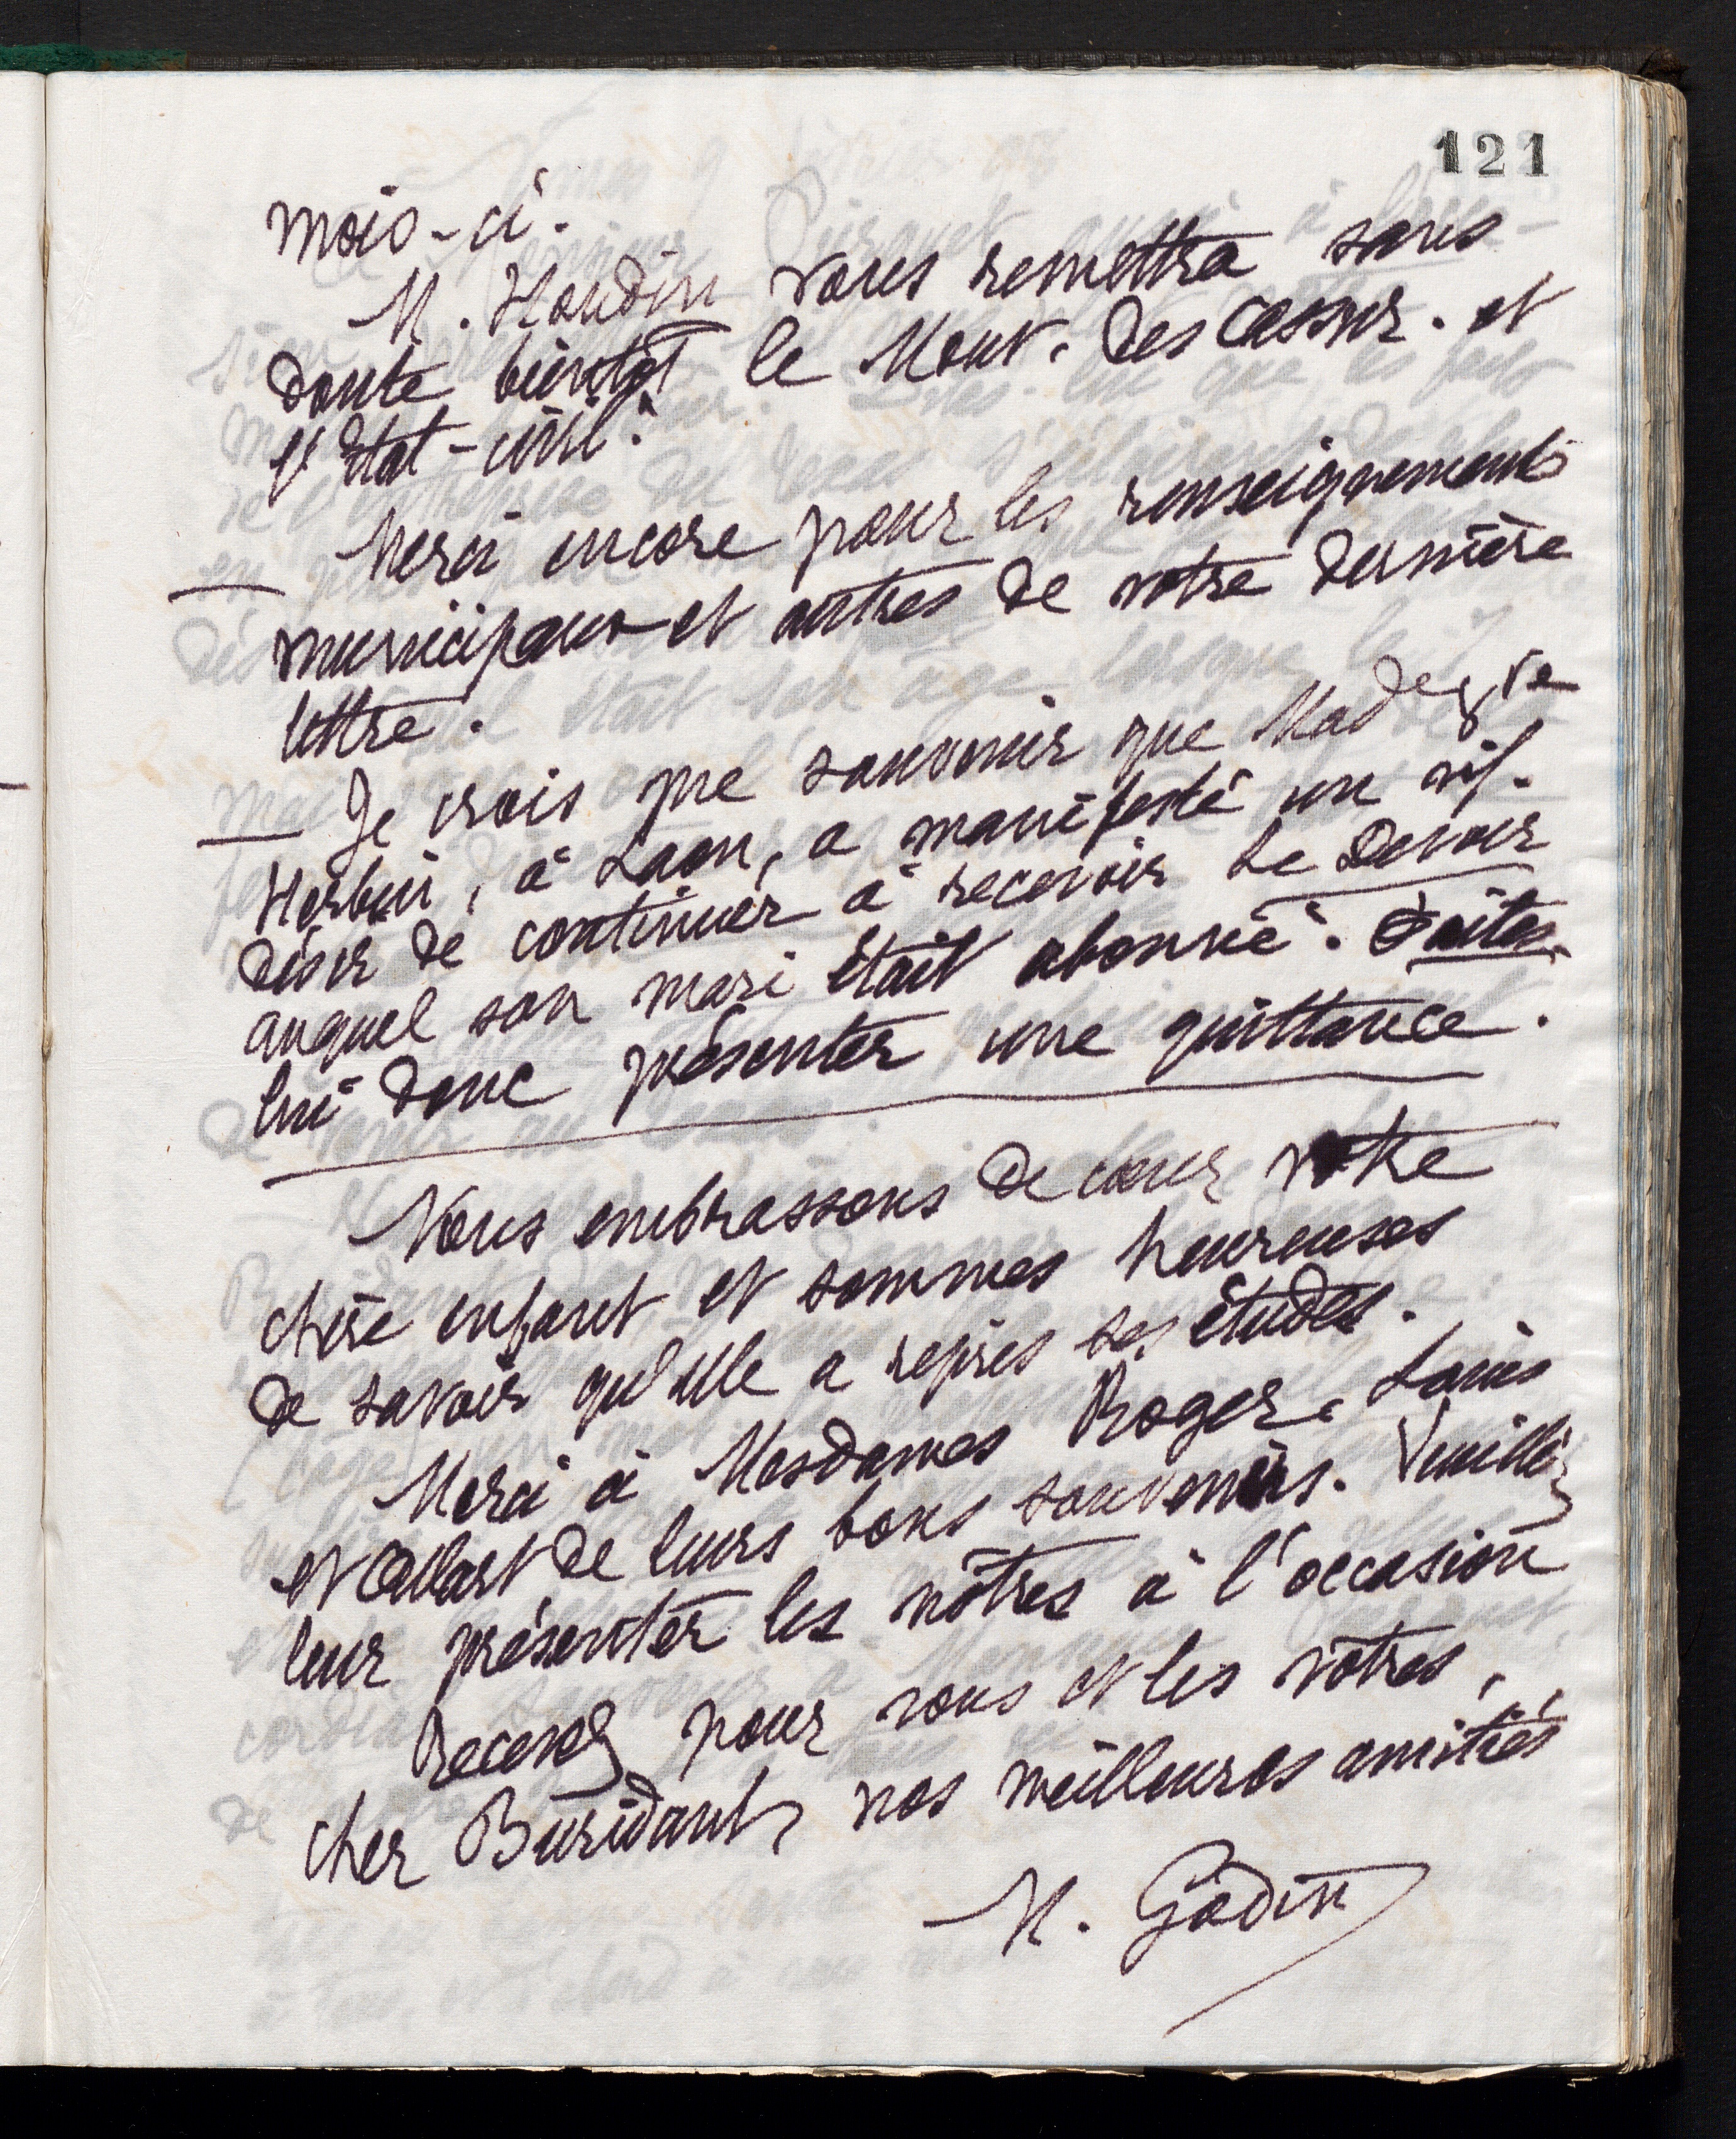 121
mois-ci.
M. Houdin vous remettra sans
doute bientôt le Mouv. des assur. et
l'Etat-civil.
Merci encore pour les renseignements
municipaux et autres de votre dernière
lettre.
Je crois me souvenir que Mad
Herbin, à Laon, a manifesté un vif
désir de continuer à recevoir Le Devoir
auquel son mari était abonné. Faites
lui donc présenter une quittance.
Nous embrassons de cœur votre
chère enfant et sommes heureuses
de savoir qu'elle a repris ses études.
Merci à Mesdames Roger, Louis
et Allart de leurs bons souvenirs. Veuillez
leur présenter les nôtres à l'occasion
Recevez pour vous et les vôtres,
cher Buridant, nos meilleures amitiés
M. Godin